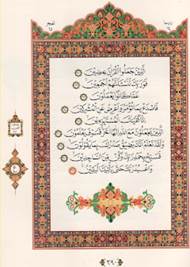 الَّذِينَ جَعَلُوا الْقُرْآنَ عِضِينَ
فَوَرَبِّكَ لَنَسْـَٔلَنَّهُمْ أَجْمَعِينَ
عَمَّا كَانُوا يَعْمَلُونَ
فَاصْدَعْ بِمَا تُؤْمَرُ وَأَعْرِضْ عَنِ الْمُشْرِكِينَ
إِنَّا كَفَيْنَاكَ الْمُسْتَهْزِئِينَ
الَّذِينَ يَجْعَلُونَ مَعَ اللَّهِ إِلَٰهًا آخَرَ فَسَوْفَ يَعْلَمُونَ
وَلَقَدْ نَعْلَمُ أَنَّكَ يَضِيقُ صَدْرُكَ بِمَا يَقُولُونَ
فَسَبِّحْ بِحَمْدِ رَبِّكَ وَكُنْ مِنَ السَّاجِدِينَ
وَاعْبُدْ رَبَّكَ حَتَّىٰ يَأْتِيَكَ الْيَقِينُ